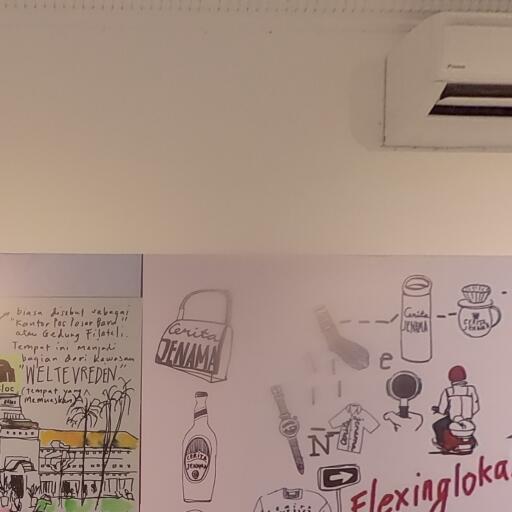 biasa disebut sebagai
"Kantor Pos Pasar Baru"
atau Gedung Filateli.
Tempat ini menjadi
bagian dari kawasan
"WELTEVREDEN"
(tempat yang
memuaskan)
Cerita
JENAMA
CERITA
JENAMA
Cerita
JENAMA
CERITA
JENAMA
e
N
Flexinglokal